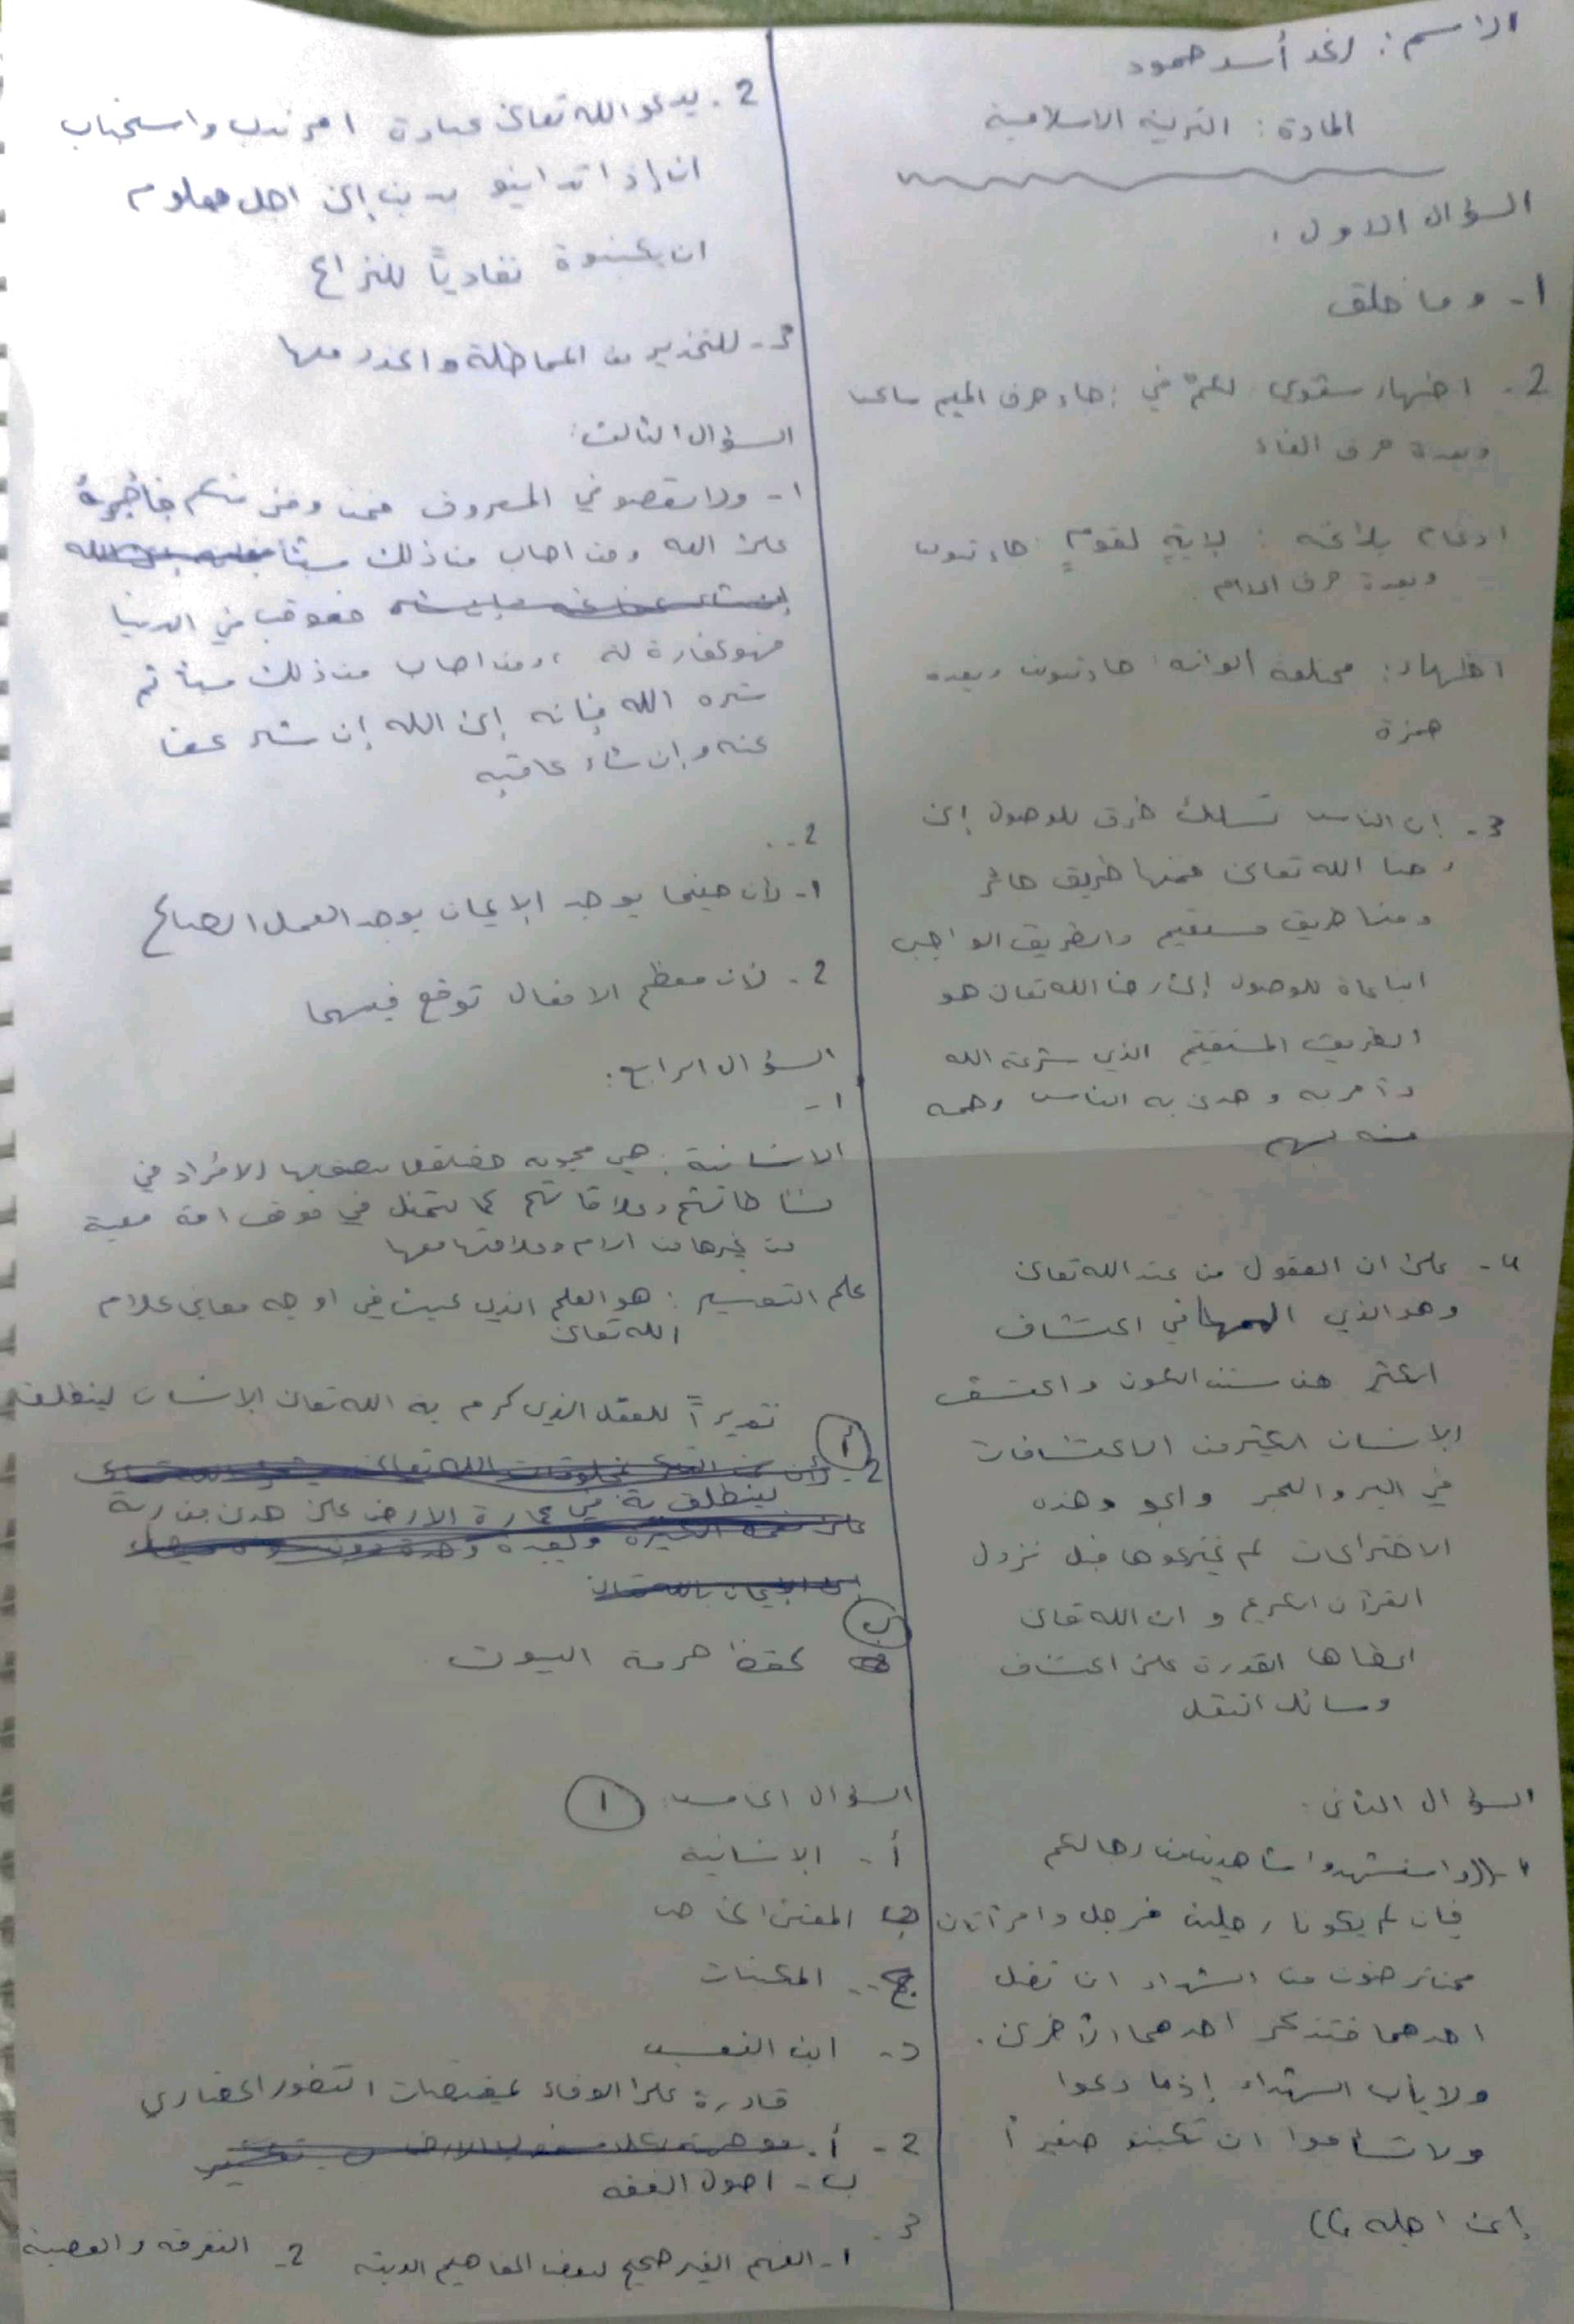 الاسم: رغد أسد حمود
المادة: التربية الاسلامية
السؤال الاول:
1- وما خلق
2- اظهار شفوي لكم في: جاء حرف الميم ساكن
وبعدة حرف الفاء
ادغام بلا غنه: لايةٍ لقومٍ جاء تنوين
وبعدة حرف اللام
اظهار: مختلفه الوانه جاء تنوين وبعده
همزة
3- ان الناس تسلك طرق للوصول إلى
رضا الله تعالى فمنها طريق جائر
ومنها طريق مستقيم والطريق الواجب
اتباعاة للوصول إلى رضا الله تعالى هو
الطريق المستقيم الذي شرعه الله
وأمر به وهدى به الناس رحمه
منه لهم
4- على ان العقول من عند الله تعالى
وهو الذي الهمها في اكتشاف
اكثر من سنن الكون واكتشف
الإنسان الكثير من الاكتشافات
في البر والبحر والجو وهذه
الاختراعات لم يخترعوها قبل نزول
القرآن الكريم و ان الله تعالى
اعطاها القدرة على اكتشاف
وسائل النقل
السؤال الثاني:
1- ((واستشهدوا شاهدين من رجالكم
فإن لم يكونا رجلين فرجل وامرأتان
ممن ترضون من الشهداء ان تضل
احدهما فتذكر احدهما الأخرى.
ولا يأب الشهداء إذما دعوا
ولا تسأموا ان تكتبو صغيراً
إلى اجله))
2. يدعو الله تعالى عبادة امر ندب واستحباب
ان إذا تداينو بدين إلى اجل معلوم
ان يكتبوة تفادياً للنزاع
3- للتحذير من المماطلة والحذر منها
السؤال الثالث:
1- ولا تعصوني المعروف فمن وفى منكم فأجرة
على الله ومن اصاب من ذلك شيئاً
فعوقب في الدنيا
فهو كفارة له، ومن اصاب من ذلك شيئاً ثم
ستره الله فإنه إلى الله إن شاء عفا
عنه وإن شاء عاقبه
2..
1- لأن حيثما يوجد الإيمان يوجد العمل الصالح
2- لأن معظم الافعال توقع فيهما
السؤال الرابع:
1-
الانسانية: هي مجموعه خصائص يتصف بها الافراد في
نشاطاتهم وعلاقاتهم كما تتمثل في موقف امة معينة
من غيرها من الامم وعلاقتها معها
علم التفسير: هو العلم الذي يبحث في اوجه معاني كلام
الله تعالى
تقديراً للعقل الذي كرم به الله تعالى الإنسان لينطلق
2- أ
لينطلق به في عمارة الارض على هدى من ربة
ب لحفظ حرمة البيوت
السؤال الخامس: 1
أ- الإنسانية
ب المعنى الخاص
ج.. الممكنات
د- ابن النفيس
قادرة على الوفاء بمقتضيات التطور الحضاري
2- أ.
ب- اصول الفقه
3-
1- الفهم الغير صحيح لبعض المفاهيم الدينة 2- التفرقه والعصبية